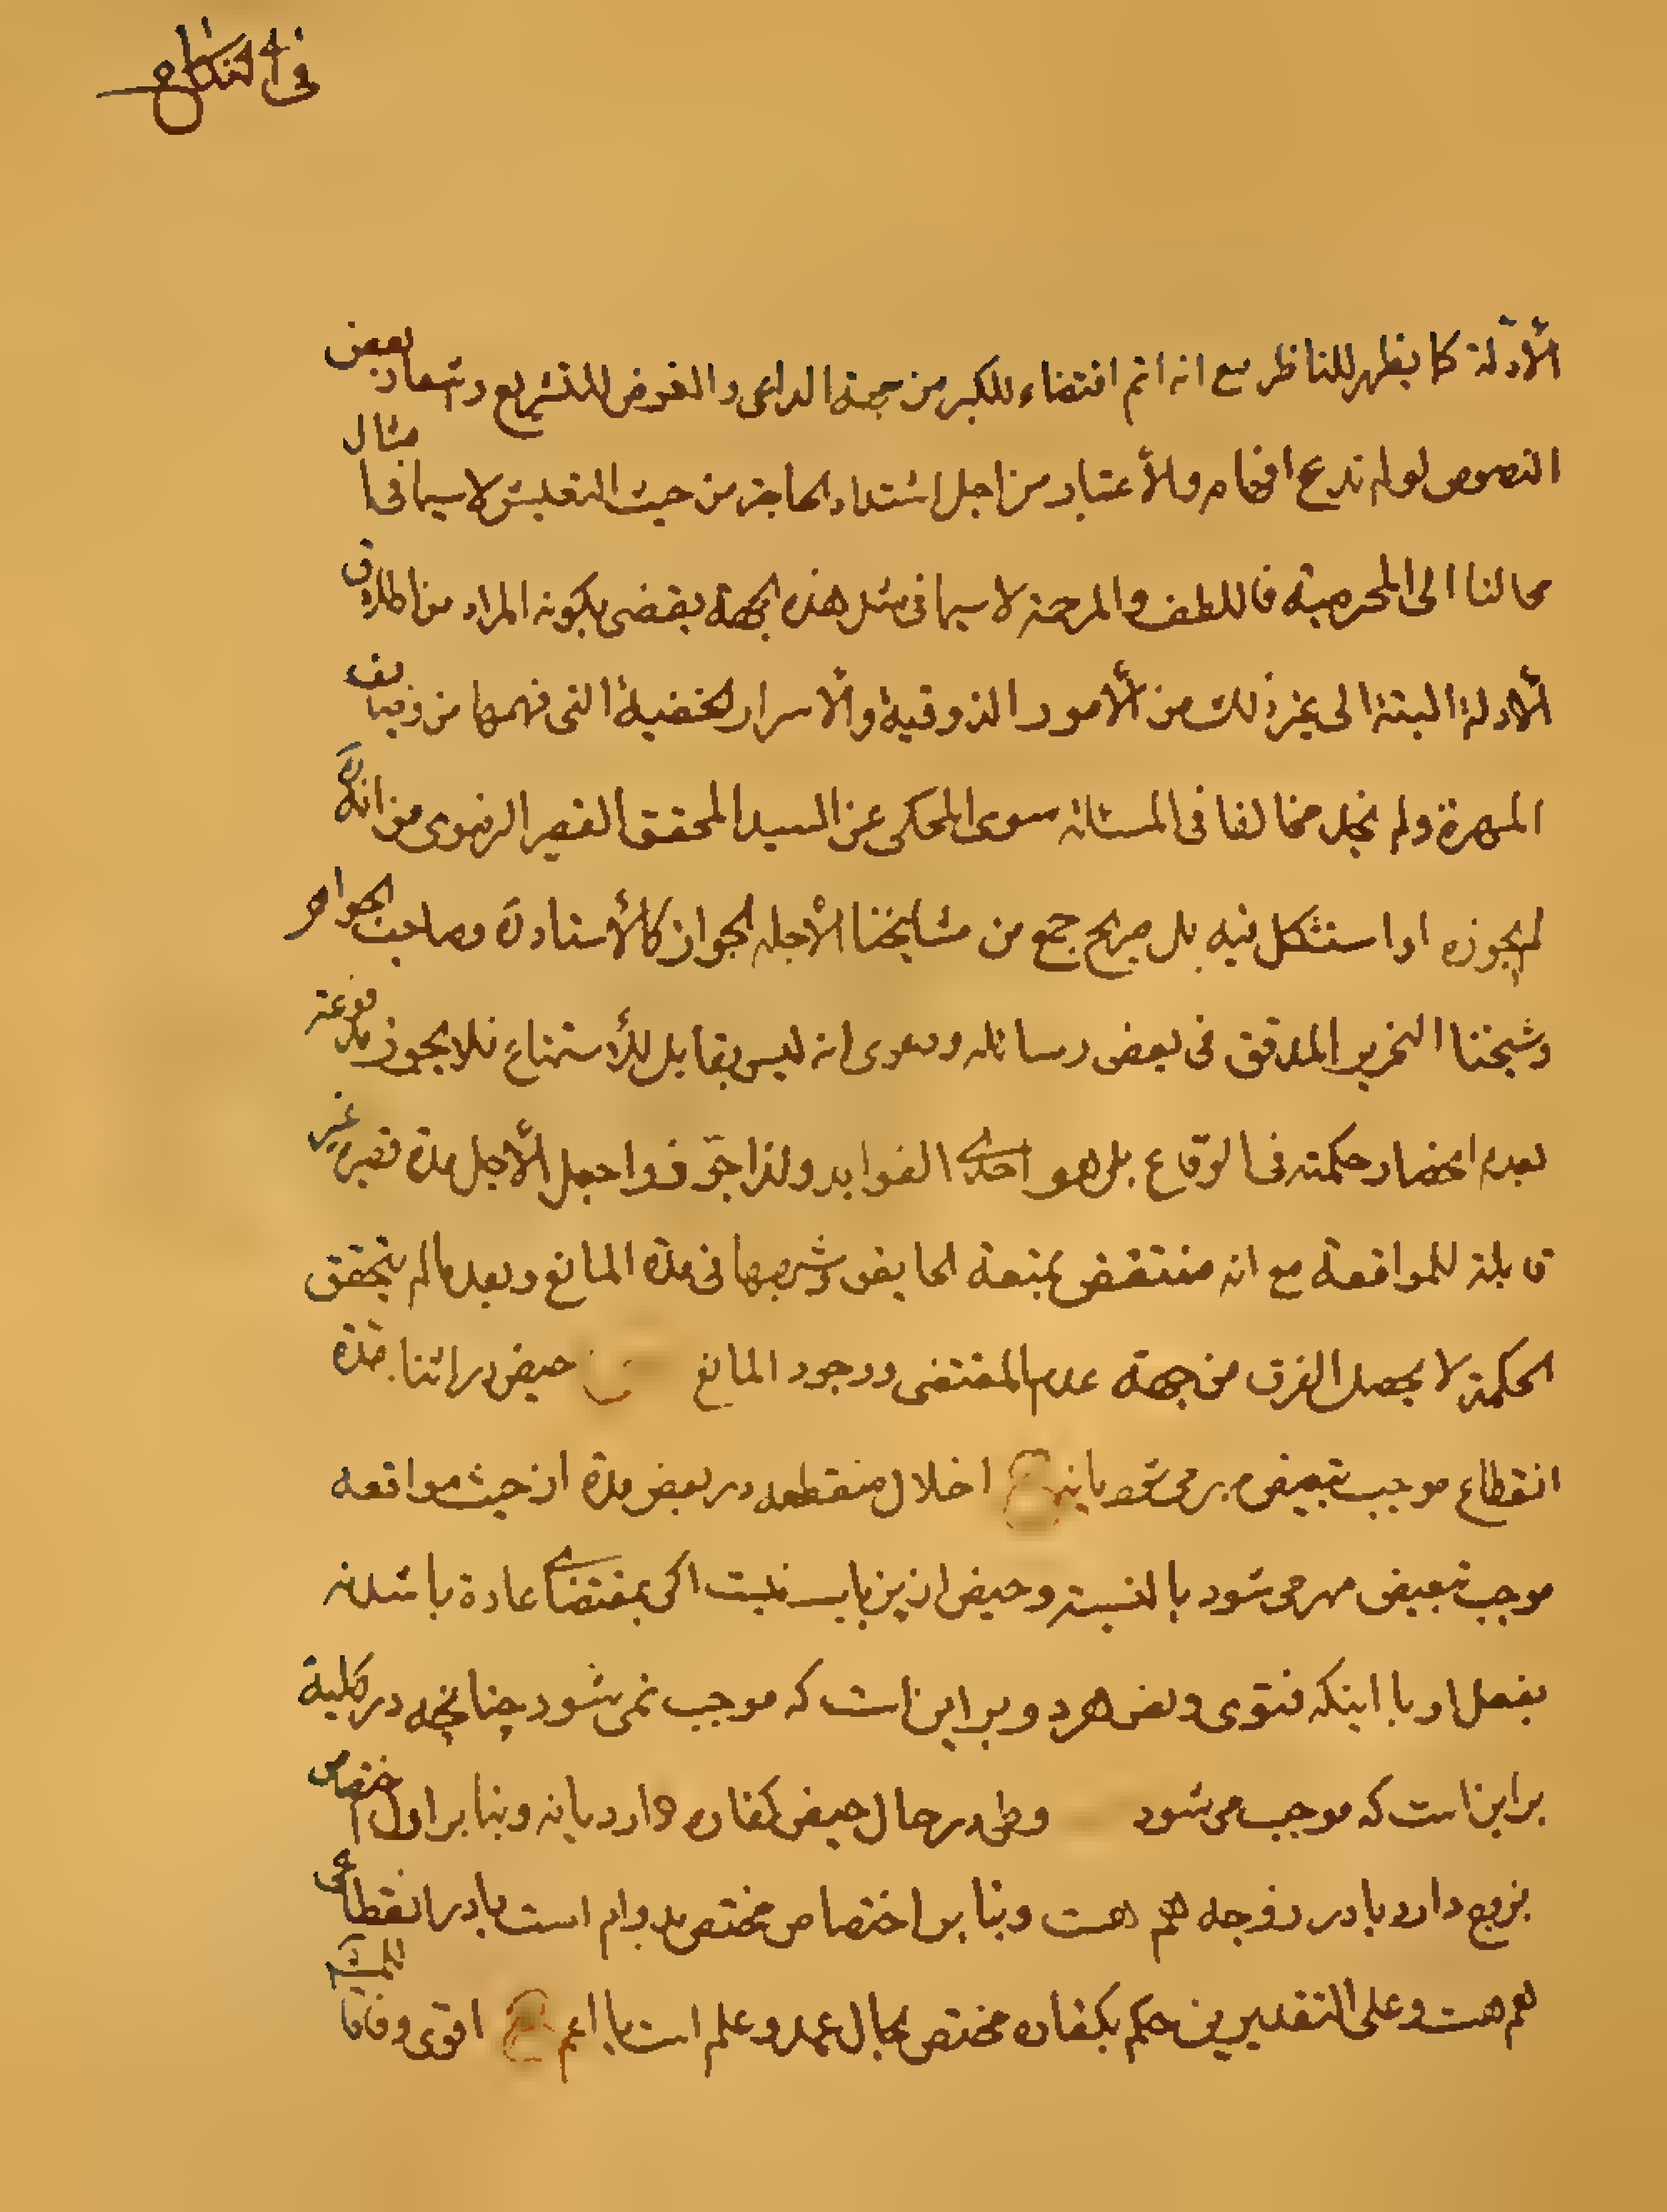 في النكاح
الأدلة كما يظهر للناظر مع انه اتم اقتضاء للكبر من جهة الداعى و الغرض للتشريع و اشعار بعض
النصوص لو لم ندع افهامه و للأعتبار من اجل اشتداد الحاجة من حيث التعليق لا سيما فى امثال
محالنا الى المحرمية فاللطف و المرحمة لا سيما فى مثل هذه الجهة يقضى بكونه المراد من اطلاق
الأدلة البتة الى غير ذلك من الأمور الذوقية و الأسرار الخفية التى فهمها من وفيات
المهرة و لم نجد مخالفا فى المسئلة سوى المحكى عن السيد المحقق القصير الرضوى من انه
لم يجوزه او استشكل فيه بل صريح جمع من مشايخنا الأجله الجواز كالأستاد ره و صاحب الجواهر
و شيخنا النحرير المدقق فى بعض رسائله و دعوى انه ليس بقابل للأستمتاع فلا يجوز مدفوعة
بعدم انحصار حكمته فى الوقاع بل هو احدى الفوايد و لذا جوزوا جعل الأجل مدة قصيرة غير
قابلة للمواقعة مع انه منتقض بمتعة الحايض و شربها فى مدة المانع و بعده ما لم يتحقق
الحكمة لا يحصل الفرق من جهة عدم المقتضى و وجود المانع حيض در اثنا مدة
انقطاع موجب تبعيض مهر مى شود يا نه ج اخلال منقطعه در بعض مدة از حيث مواقعه
موجب تبعيض مهر مى شود بالنسبة و حيض ازين باب نيست اگر بمقتضاى عادة باشد نه
بفعل او با اينكه فتوى و نص هر دو بر اين است كه موجب نمى شود چنانچه در كلية
بر اين است كه موجب مى شود وطى در حال حيض كفاره دارد يا نه و بنا بر اول اختصاص
بزوج دارد يا در زوجه هم هست و بنا بر اختصاص مختص بدوام است يا در انقطاعى
هم هست و على التقديرين حكم بكفاره مختص بحال عمد و علم است يا اعم ج اقوى وفاقا للمشهور